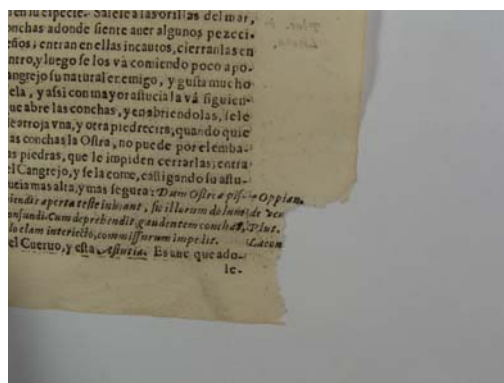 en su especie. Salese a las orillas del mar,
onchas adonde siente auer algunos pezeci-
eños; entran en ellas incautos, cierran las en
ntro, y luego se los vá comiendo poco a po-
angrejo su natural enemigo, y gusta mucho
ela, y assi con mayor astucia la vá siguien-
ue abre las conchas, y en abriendolas, se le
e arroja vna, y otra piedrecita, quando quie
as conchas la Ostra, no puede por el emba-
as piedras, que le impiden cerrarlas; entra
el Cangrejo, y se la come, castigando su astu-
ucia mas alta, y mas segura: Dum Ostrea pis- Oppian.
aperta teste de
Cum deprehendit, gaudentem conchas, Plut.
clam interiecto, commissurum impedit. Lacon
el Cueruo, y esta Astucia. Es aue que ado-
le.